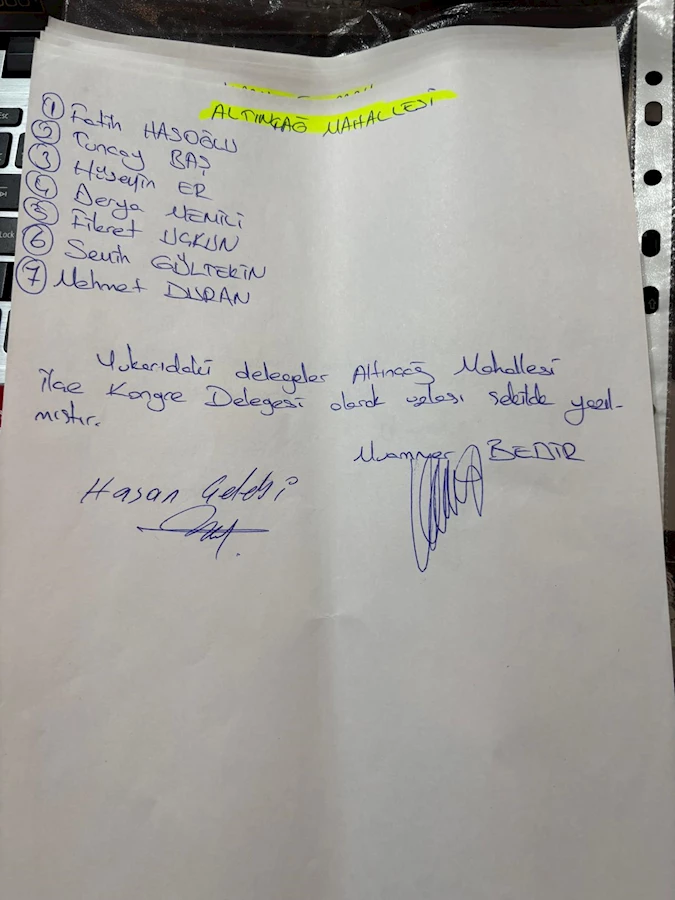 ALTINÇAĞ MAHALLESİ
1 Fatih HASOĞLU
2 Tuncay BAŞ
3 Hüseyin ER
4 Derya MEMİLİ
5 Fikret UÇKUN
6 Semih GÜLTEKİN
7 Mehmet DURAN
Yukarıdaki delegeler Altınçağ Mahallesi
ilçe Kongre Delegesi olarak uzlaşı şekilde yazıl-
mıştır.
Muammer BEDİR
Hasan Çelebi